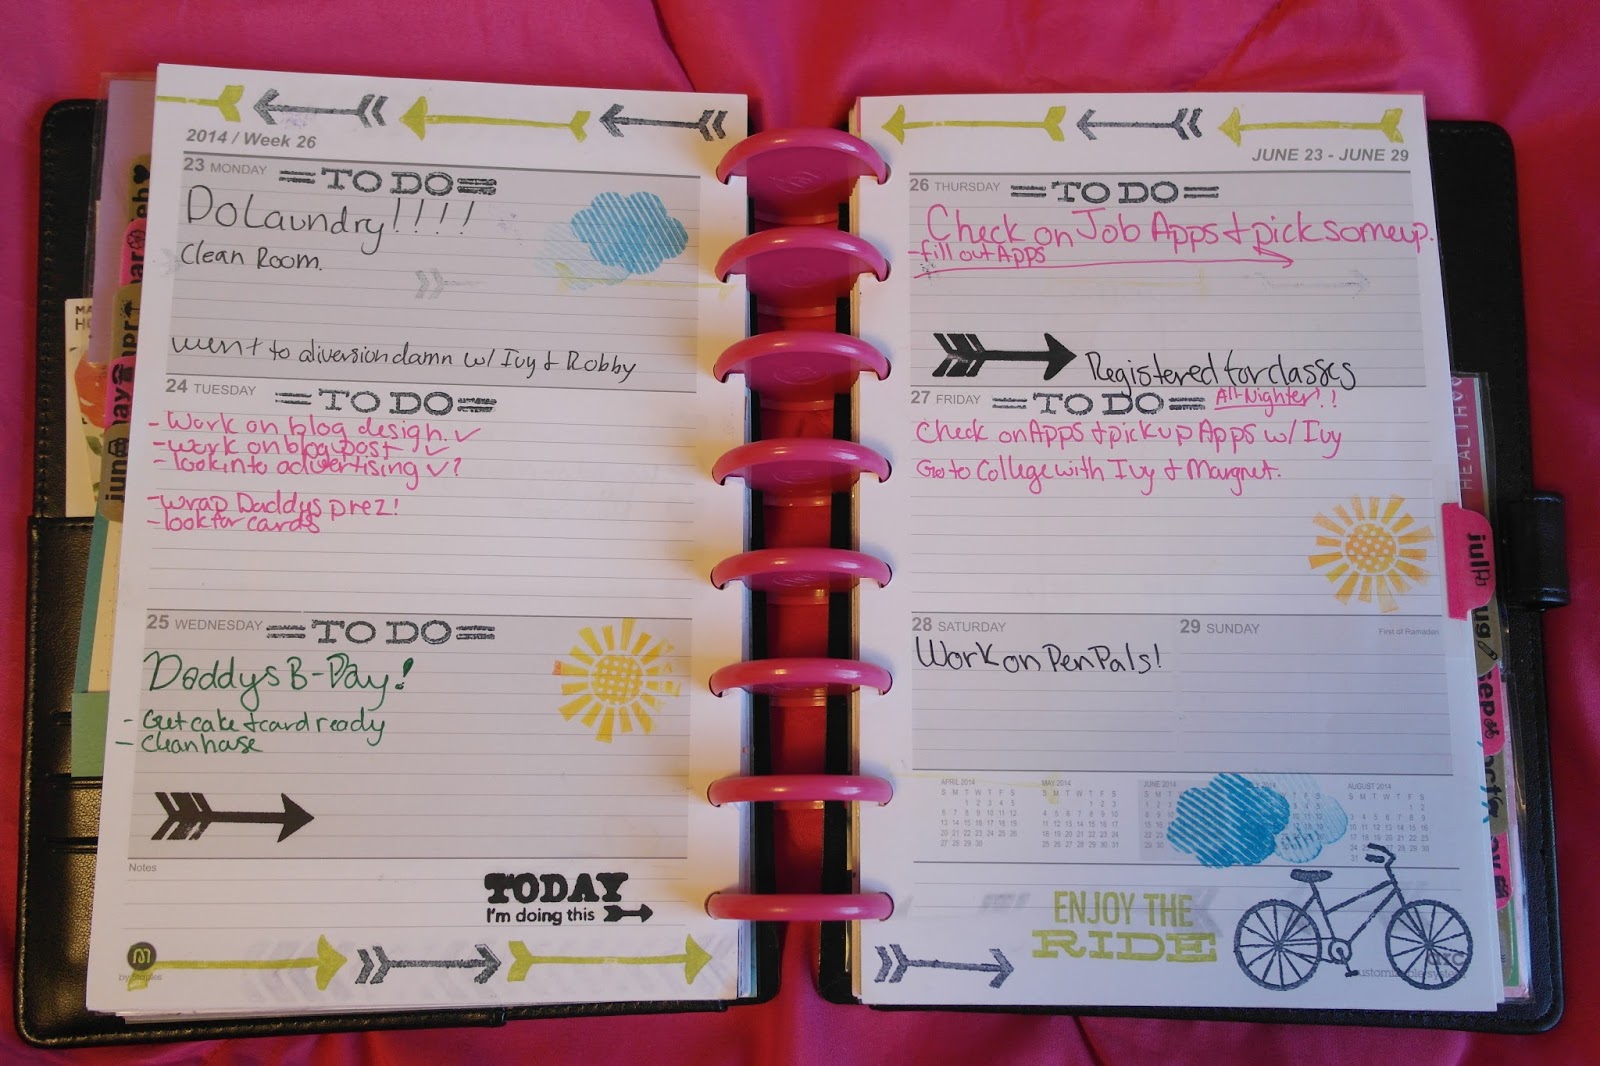 2014 / Week 26
23 MONDAY
TO DO
Do Laundry!!!!
Clean Room.
went to aliversiondamn w/ Ivy & Robby
24 TUESDAY
TO DO
- Work on blog design. ✓
- work on blog post ✓
- look into adivertising ✓?
- wrap Daddys prez!
- look for cards
25 WEDNESDAY
TO DO
Daddys B-Day!
- Get cake & card ready
- Clean house
Notes
TODAY
I'm doing this
JUNE 23 - JUNE 29
26 THURSDAY
TO DO
Check on Job Apps & pick some up.
- fill out Apps
Registered for classes
27 FRIDAY
TO DO
All-Nighter!!
Check on Apps & pick up Apps w/ Ivy
Go to College with Ivy & Margret.
28 SATURDAY
Work on Pen Pals!
29 SUNDAY
First of Ramadan
APRIL 2014
MAY 2014
JUNE 2014
AUGUST 2014
ENJOY THE
RIDE
arc
customizable system
jun
jul
aug
sep
HEALTH